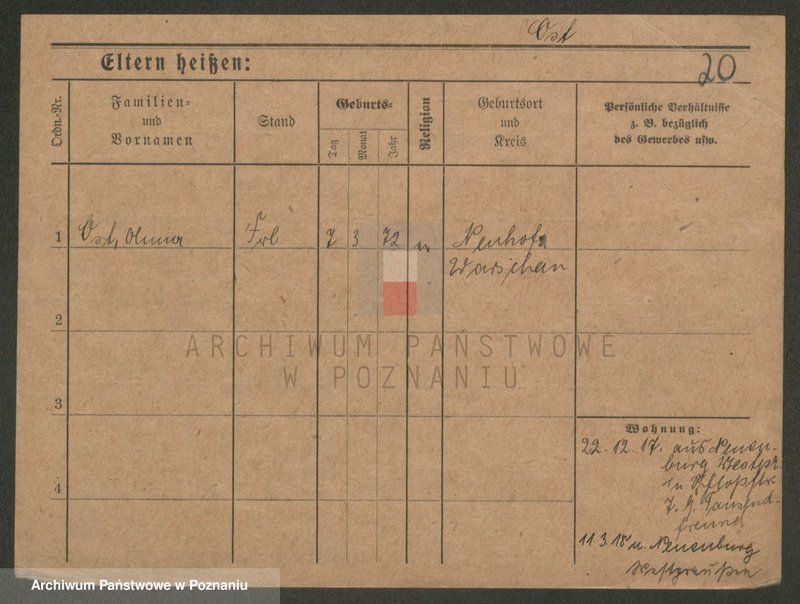 Ost
Eltern heißen:
20
Ordn.-Nr.
Familien-
und
Vornamen
Stand
Geburts-
Tag
Monat
Jahr
Religion
Geburtsort
und
Kreis
Persönliche Verhältnisse
z. B. bezüglich
des Gewerbes usw.
1
Ost,
Frl
7
3
72
Neuhof
Warschau
2
ARCHIWUM PAŃSTWOWE
W POZNANIU
3
Wohnung:
22.12.17. aus Neuen-
burg Westpr.
in Schloßstr.
7. b. Tausend-
freund
4
11.3.18 n. Neuenburg
Westpreußen
Archiwum Państwowe w Poznaniu